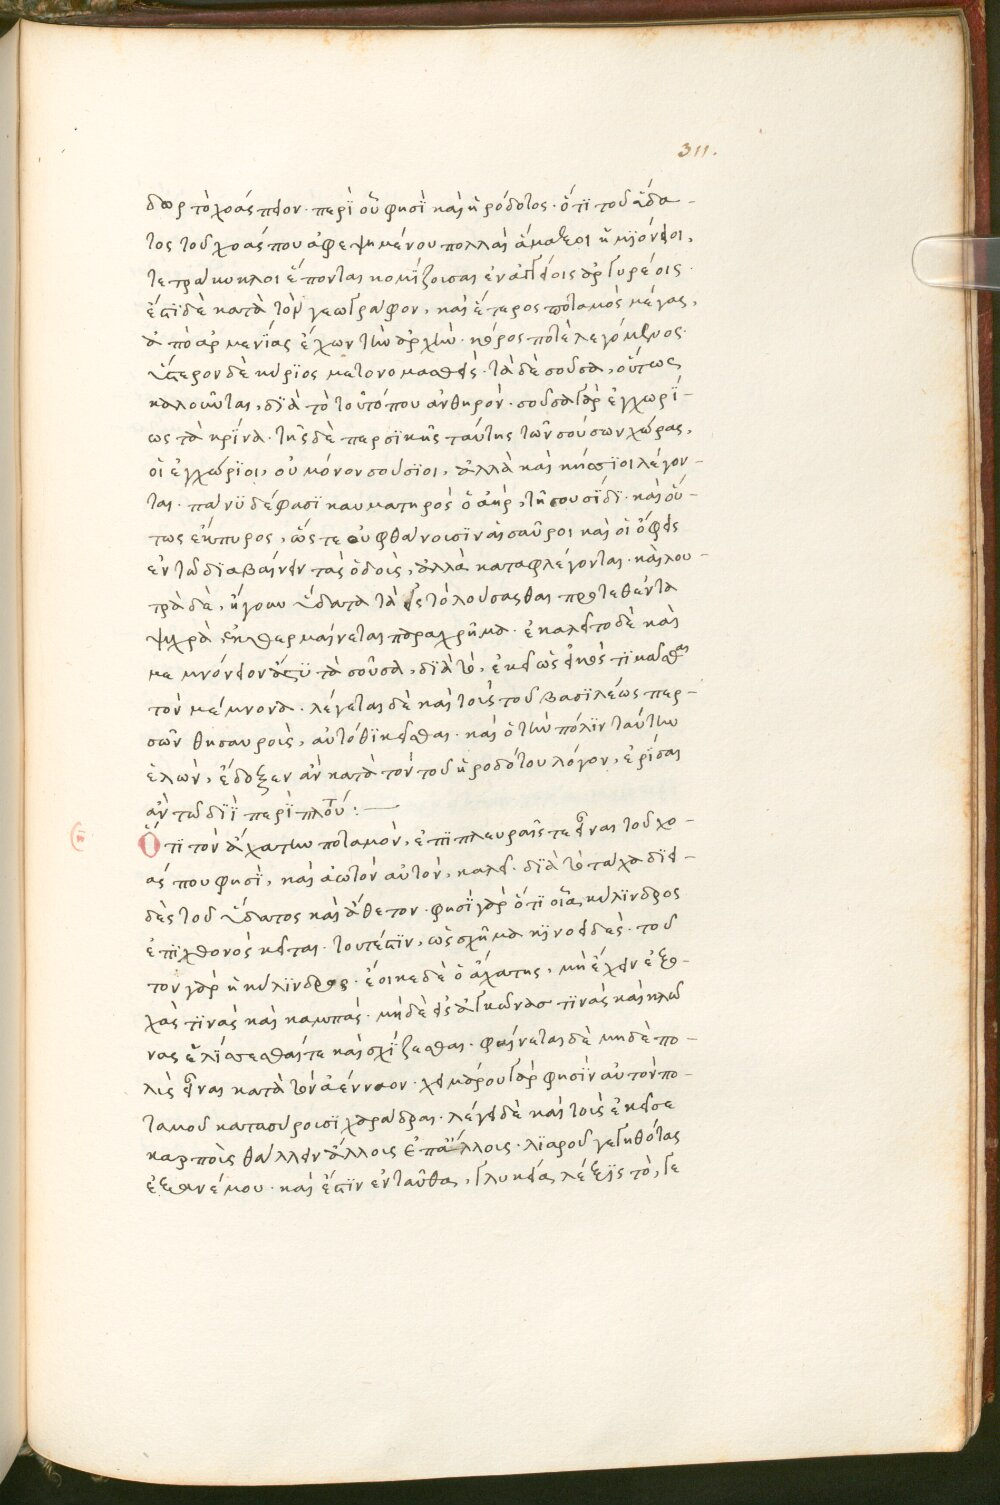 311.
δωρ τὸ χοάσπειον· περὶ οὗ φησὶ καὶ ἡρόδοτος· ὅτι τοῦ ὕδα-
τος τοῦ χοάσπου ἀφεψημένου πολλαὶ ἅμαξαι ἡμιόνειοι,
τετράκυκλοι ἕπονται κομίζουσαι ἐν ἀγγείοις ἀργυρέοις·
ἔστι δὲ κατὰ τὸν γεωγράφον, καὶ ἕτερος ποταμὸς μέγας,
ἀπὸ ἀρμενίας ἔχων τὴν ἀρχὴν· κόρος ποτὲ λεγόμενος·
ὕστερον δὲ κύριος μετονομασθείς· τὰ δὲ σοῦσα, οὕτως
καλοῦνται, διὰ τὸ τοῦ τόπου ἀνθηρόν· σοῦσα γὰρ ἐγχωρί-
ως τὰ κρίνα· τῆς δὲ περσικῆς ταύτης τῶν σούσων χώρας,
οἱ ἐγχώριοι, οὐ μόνον σούσιοι, ἀλλὰ καὶ κίσσιοι λέγον-
ται· πάνυ δέ φασι καυματηρὸς ὁ ἀὴρ, τῇ σουσίδι· καὶ οὕ-
τως ἔκπυρος, ὥς τε οὐ φθάνουσιν αἱ σαῦροι καὶ οἱ ὄφεις
ἐν τῷ διαβαίνειν τὰς ὁδοὺς, ἀλλὰ καταφλέγονται· καὶ λου-
τρὰ δὲ, ἤγουν ὕδατα τὰ εἰς τὸ λούσασθαι προτεθέντα
ψυχρὰ ἐκθερμαίνεται παραχρῆμα· ἐκαλεῖτο δὲ καὶ
μεμνόνειον ἄστυ τὰ σοῦσα, διὰ τὸ, ἐκεῖ ὡς εἰκὸς τιμᾶσθαι
τὸν μέμνονα· λέγεται δὲ καὶ τοὺς τοῦ βασιλέως περ-
σῶν θησαυροὺς, αὐτόθι κεῖσθαι· καὶ ὁ τὴν πόλιν ταύτην
ἑλὼν, ἔδοξεν ἂν κατὰ τὸν τοῦ ἡροδότου λόγον, ἐρίσαι
ἂν τῷ διῒ περὶ πλούτου:—
Ὅτι τὸν ἀχάτην ποταμὸν, ἐπὶ πλευραῖς τε εἶναι τοῦ χο-
άσπου φησὶ, καὶ ἀωτὸν αὐτὸν, καλεῖ· διὰ τὸ ταχὰ διει-
δὲς τοῦ ὕδατος καὶ ἄθετον· φησὶ γὰρ ὅτι οἷα κύλινδρος
ἐπὶ χθονὸς κεῖται· τουτέστιν, ὡς σχῆμα κινοειδές· τοῦ
τον γὰρ ἡ κύλινδρος· ἔοικε δὲ ὁ ἀχάτης, μὴ ἔχειν ἐξο-
χάς τινάς καὶ καμπάς· μηδὲ εἰς ἀγκῶνας τινὰς καὶ κλῶ
νας ἑλίσσεσθαί τε καὶ σχίζεσθαι· φαίνεται δὲ μηδὲ πο-
λὺς εἶναι κατὰ τὸν ἀένναον· χειμάρρου γὰρ φησὶν αὐτὸν πο-
ταμοῦ κατασύρουσι χαράδραι· λέγει δὲ καὶ τοὺς ἐκεῖσε
καρποὺς θάλλειν ἄλλοις ἐπ' ἄλλοις· λιαροῦ γεγηθότας
ἐξ ἀνέμου· καὶ ἔστιν ἐνταῦθα, γλυκεῖα λέξις τὸ, γε